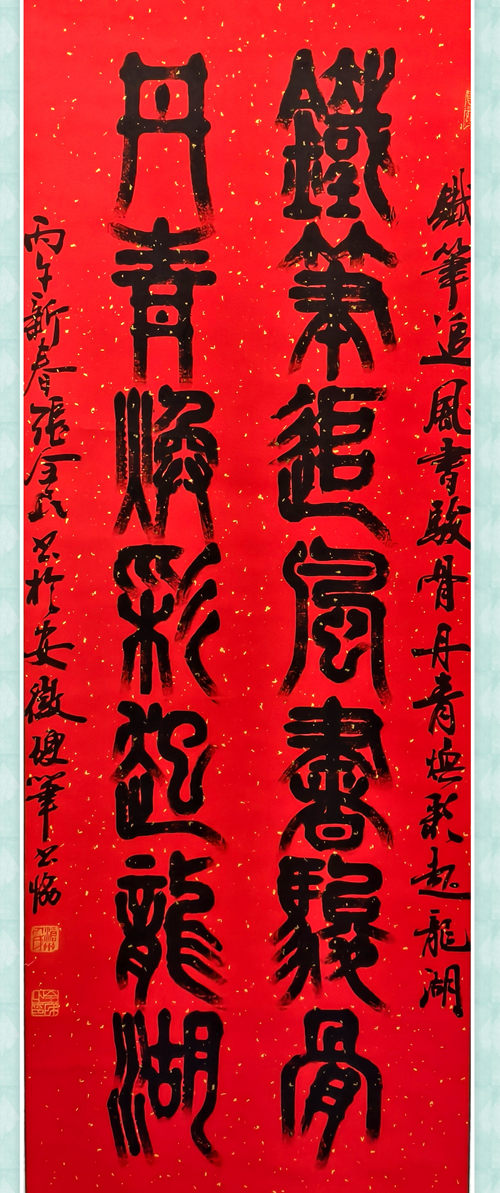 鐵筆追風書駿骨丹青煥彩起龍湖
鐵筆追風書駿骨
丹青煥彩起龍湖
丙午新春張金民書於安徽硬筆書協